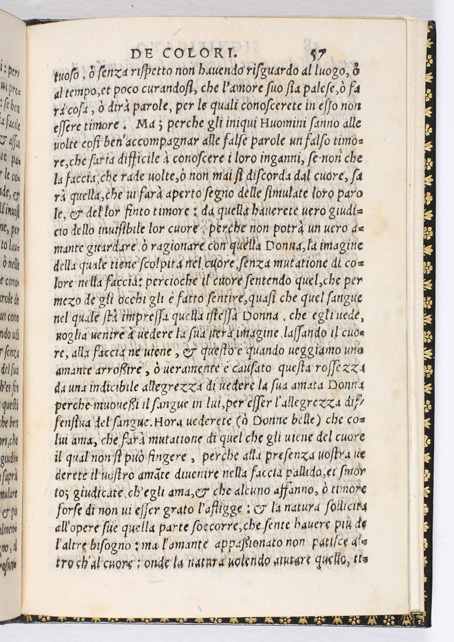 DE COLORI. 57
tuoso, ò senza rispetto non havendo risguardo al luogo, ò
al tempo, et poco curandosi, che l'amore suo sia palese, ò fa
rà cosa, ò dirà parole, per le quali conoscerete in esso non
essere timore. Ma; perche gli iniqui Huomini sanno alle
volte cosi ben'accompagnar alle false parole un falso timo-
re, che saria difficile à conoscere i loro inganni, se non che
la faccia, che rade volte, ò non mai si discorda dal cuore, sa
rà quella, che vi farà aperto segno delle simulate loro paro
le, & del lor finto timore: da quella haverete vero giudi-
cio dello invisibile lor cuore, perche non potrà un vero a-
mante guardare, ò ragionare con quella Donna, la imagine
della quale tiene scolpita nel cuore, senza mutatione di co-
lore nella faccia: percioche il cuore sentendo quel, che per
mezo de gli occhi gli è fatto sentire, quasi che quel sangue
nel quale stà impressa quella istessa Donna, che egli vede,
voglia venire à vedere la sua vera imagine, lassando il cuo-
re, alla faccia ne viene, & questo è quando veggiamo uno
amante arrossire, ò veramente è causato questa rossezza
da una indicibile allegrezza di vedere la sua amata Donna
perche muovesi il sangue in lui, per esser l'allegrezza dif-
fensiva del sangue. Hora vederete (ò Donne belle) che co-
lui ama, che farà mutatione di quel che gli viene del cuore
il qual non si può fingere, perche alla presenza vostra ve
derete il vostro amāte divenire nella faccia pallido, et smor
to; giudicate, ch'egli ama, & che alcuno affanno, ò timore
forse di non vi esser grato l'afflige: & la natura sollicita
all'opere sue quella parte soccorre, che sente havere più de
l'altre bisogno: ma l'amante appassionato non patisce al-
tro ch'al cuore: onde la natura volendo aiutare quello, ti-